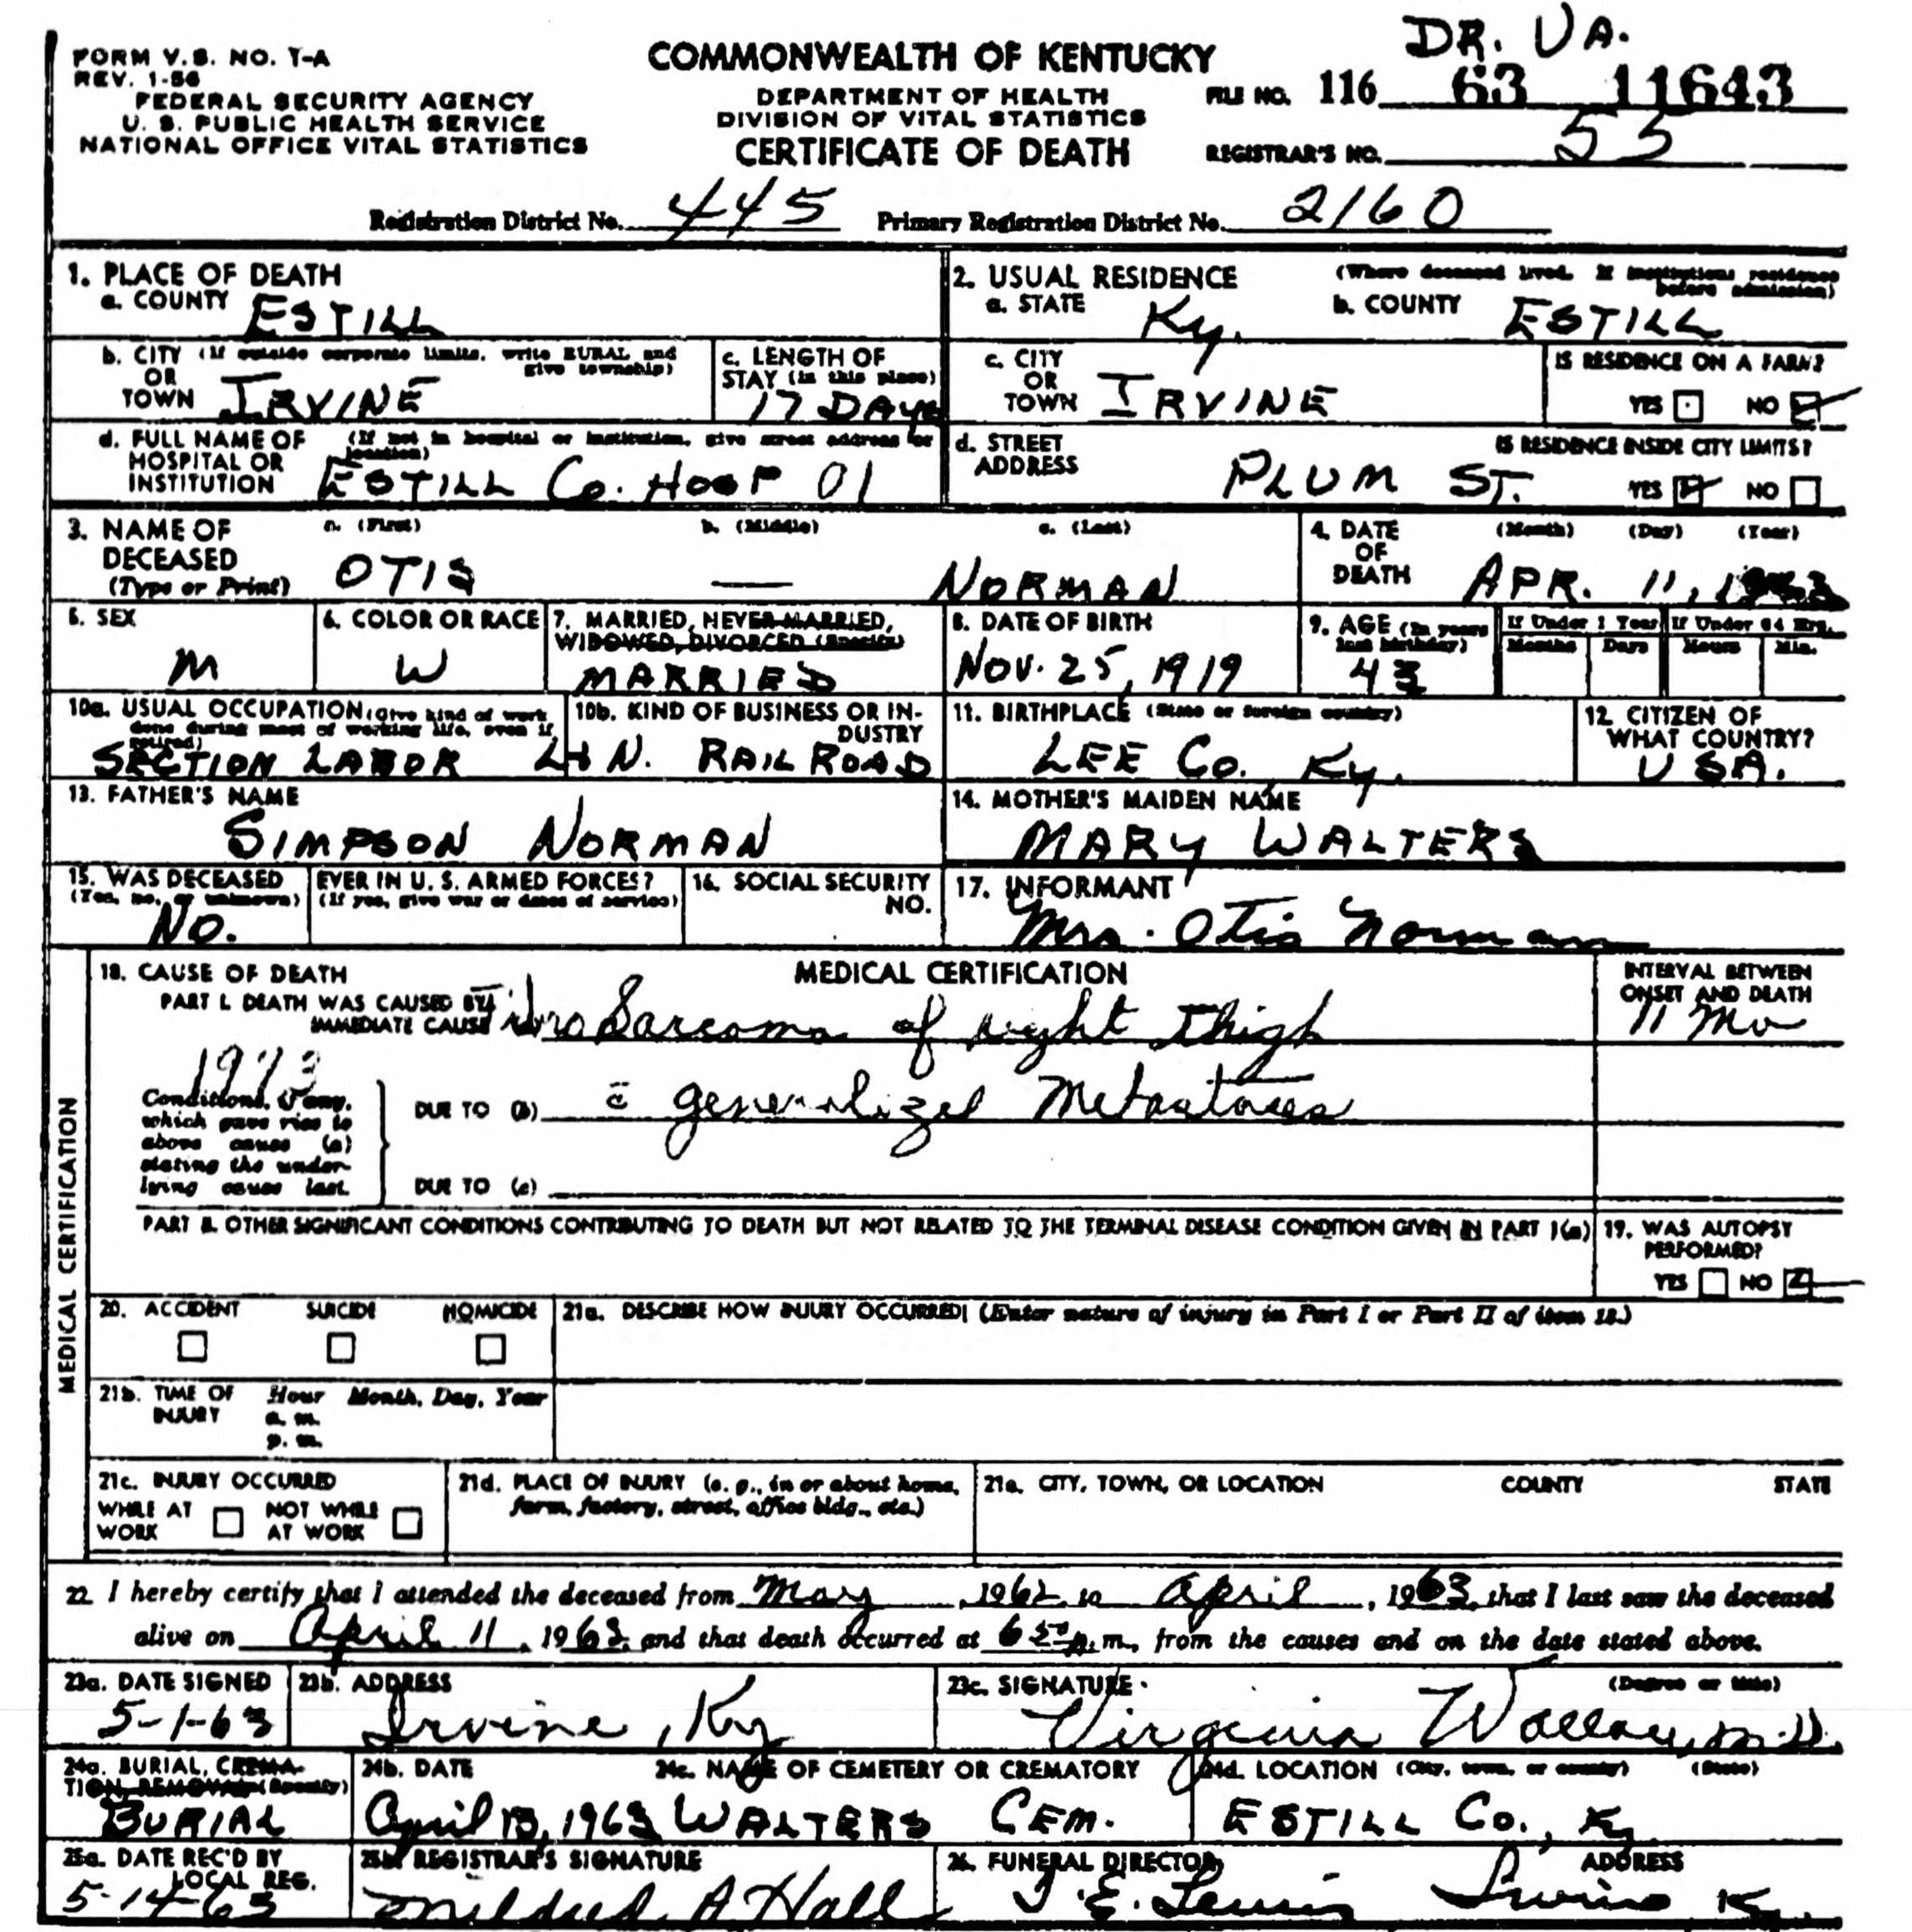 DR. VA.
FORM V.S. NO. 1-A
REV. 1-56
FEDERAL SECURITY AGENCY
U. S. PUBLIC HEALTH SERVICE
NATIONAL OFFICE VITAL STATISTICS
COMMONWEALTH OF KENTUCKY
DEPARTMENT OF HEALTH
DIVISION OF VITAL STATISTICS
CERTIFICATE OF DEATH
FILE NO. 116 63 11643
REGISTRAR'S NO. 55
Registration District No. 445 Primary Registration District No. 2160
1. PLACE OF DEATH
a. COUNTY ESTILL
2. USUAL RESIDENCE (Where deceased lived. If institution: residence before admission)
a. STATE Ky. b. COUNTY ESTILL
b. CITY (If outside corporate limits, write RURAL and give township)
OR
TOWN IRVINE
c. LENGTH OF
STAY (in this place)
17 DAYS
c. CITY
OR
TOWN IRVINE
IS RESIDENCE ON A FARM?
YES NO
d. FULL NAME OF (If not in hospital or institution, give street address or location)
HOSPITAL OR
INSTITUTION ESTILL Co. HOSP 01
d. STREET
ADDRESS PLUM ST.
IS RESIDENCE INSIDE CITY LIMITS?
YES NO
3. NAME OF
DECEASED
(Type or Print)
a. (First) b. (Middle) c. (Last)
OTIS — NORMAN
4. DATE
OF
DEATH
(Month) (Day) (Year)
APR. 11, 1963
5. SEX
M
6. COLOR OR RACE
W
7. MARRIED, NEVER MARRIED,
WIDOWED, DIVORCED (Specify)
MARRIED
8. DATE OF BIRTH
NOV. 25, 1919
9. AGE (In years last birthday)
43
If Under 1 Year If Under 24 Hrs.
Months Days Hours Min.
10a. USUAL OCCUPATION (Give kind of work done during most of working life, even if retired)
SECTION LABOR
10b. KIND OF BUSINESS OR INDUSTRY
L&N. RAILROAD
11. BIRTHPLACE (State or foreign country)
LEE Co., Ky.
12. CITIZEN OF
WHAT COUNTRY?
USA.
13. FATHER'S NAME
SIMPSON NORMAN
14. MOTHER'S MAIDEN NAME
MARY WALTERS
15. WAS DECEASED EVER IN U. S. ARMED FORCES?
(Yes, no, or unknown) (If yes, give war or dates of service)
No.
16. SOCIAL SECURITY
NO.
17. INFORMANT
Mrs. Otis Norman
MEDICAL CERTIFICATION
18. CAUSE OF DEATH
MEDICAL CERTIFICATION
INTERVAL BETWEEN
ONSET AND DEATH
PART I. DEATH WAS CAUSED BY:
IMMEDIATE CAUSE Fibro Sarcoma of right thigh
11 Mo
1973
Conditions, if any,
which gave rise to
above cause (a)
stating the under-
lying cause last.
DUE TO (b) c̄ generalized Metastases
DUE TO (c)
PART II. OTHER SIGNIFICANT CONDITIONS CONTRIBUTING TO DEATH BUT NOT RELATED TO THE TERMINAL DISEASE CONDITION GIVEN IN PART I(a)
19. WAS AUTOPSY
PERFORMED?
YES NO
20. ACCIDENT SUICIDE HOMICIDE
21a. DESCRIBE HOW INJURY OCCURRED (Enter nature of injury in Part I or Part II of item 18.)
21b. TIME OF
INJURY
Hour Month, Day, Year
a. m.
p. m.
21c. INJURY OCCURRED
WHILE AT
WORK
NOT WHILE
AT WORK
21d. PLACE OF INJURY (e. g., in or about home,
farm, factory, street, office bldg., etc.)
21e. CITY, TOWN, OR LOCATION COUNTY STATE
22. I hereby certify that I attended the deceased from May, 1962 to April, 1963, that I last saw the deceased
alive on April 11, 1963, and that death occurred at 6 50 p.m., from the causes and on the date stated above.
23a. DATE SIGNED
5-1-63
23b. ADDRESS
Irvine, Ky
23c. SIGNATURE (Degree or title)
Virginia Wallace, M.D.
24a. BURIAL, CREMA-
TION, REMOVAL (Specify)
BURIAL
24b. DATE
April 13, 1963
24c. NAME OF CEMETERY OR CREMATORY
WALTERS CEM.
24d. LOCATION (City, town, or county) (State)
ESTILL Co., Ky.
25a. DATE REC'D BY
LOCAL REG.
5-14-63
25b. REGISTRAR'S SIGNATURE
Mildred A Hall
26. FUNERAL DIRECTOR ADDRESS
J. E. Lewis Irvine Ky.